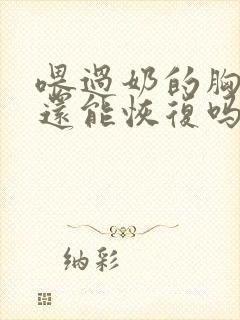 喂過奶的胸
還能恢復吗
纳彩